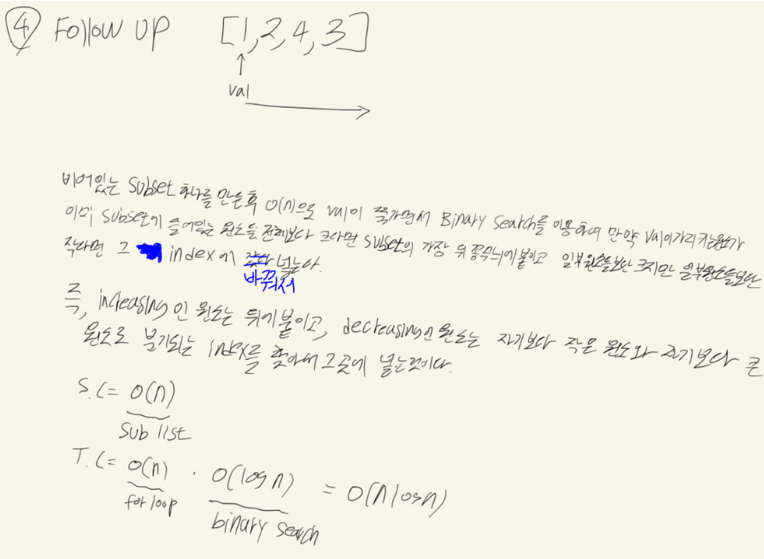 ④ Follow UP [1,2,4,3]
↑
val
비어있는 subset 하나를 만든후 O(n)으로 val이 쭉가면서 Binary Search를 이용하여 만약 val이가리키는원소가
이미 subset에 들어있는 원소들 전체보다 크다면 subset의 가장 뒤쪽에 붙이고 일부원소들보단 크지만 일부원소들보단
작다면 그 index에 넣는다.
바꿔서
즉, increasing인 원소는 뒤에붙이고, decreasing인 원소는 자기보다 작은 원소와 자기보다 큰
원소로 분기되는 index를 찾아서 그곳에 넣는것이다.
S.C = O(n)
sub list
T.C = O(n) · O(log n) = O(n log n)
for loop
binary search